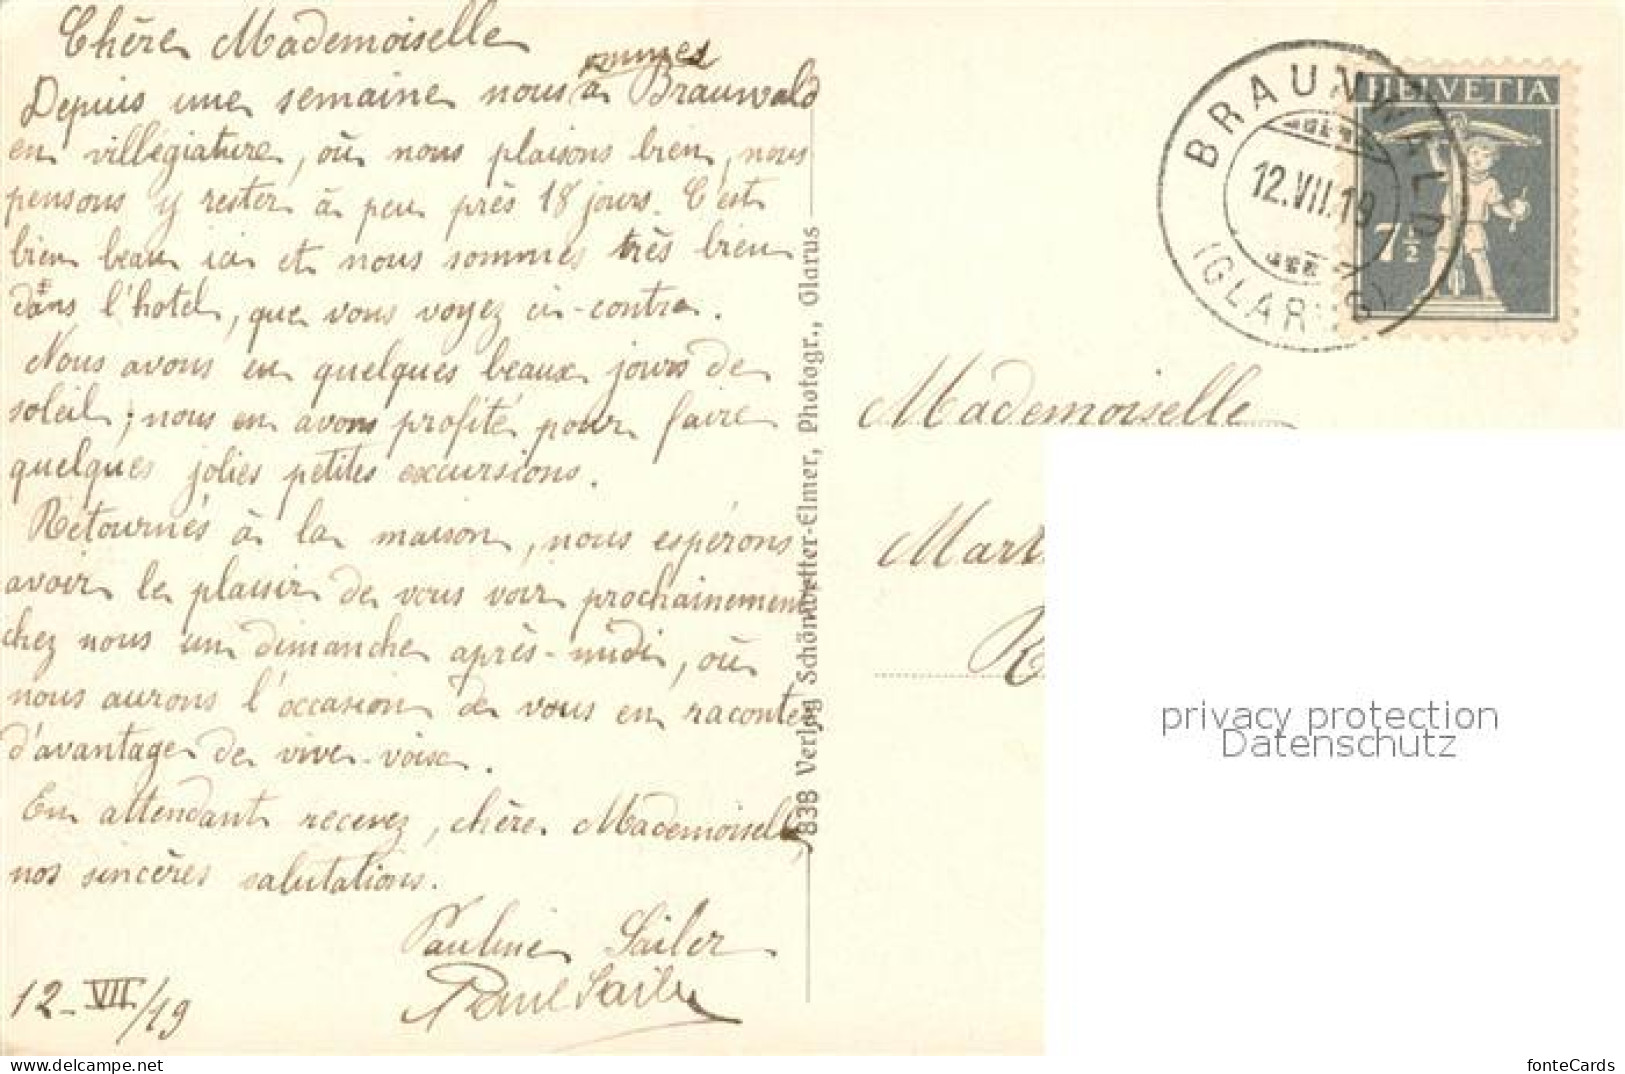 Chère Mademoiselle
ommes
Depuis une semaine nous à Braunwald
en villégiature, où nous plaisons bien, nous
pensons y rester à peu près 18 jours. C'est
bien beau ici et nous sommes très bien
dans l'hotel, que vous voyez ci-contre.
Nous avons eu quelques beaux jours de
soleil; nous en avons profité pour faire
quelques jolies petites excursions.
Retournés à la maison, nous espérons
avoir le plaisir de vous voir prochainement
chez nous un dimanche après-midi, où
nous aurons l'occasion de vous en raconter
d'avantage de vive-voix.
En attendant recevez, chère Mademoiselle,
nos sincères salutations.
Pauline Sailer
Paul Sailer
12-VII/19
7838 Verlag Schönwetter-Elmer, Photogr., Glarus
BRAUNWALD
12.VII.19
(GLARUS)
HELVETIA
7½
Mademoiselle
Mart
R
privacy protection
Datenschutz
fonteCards